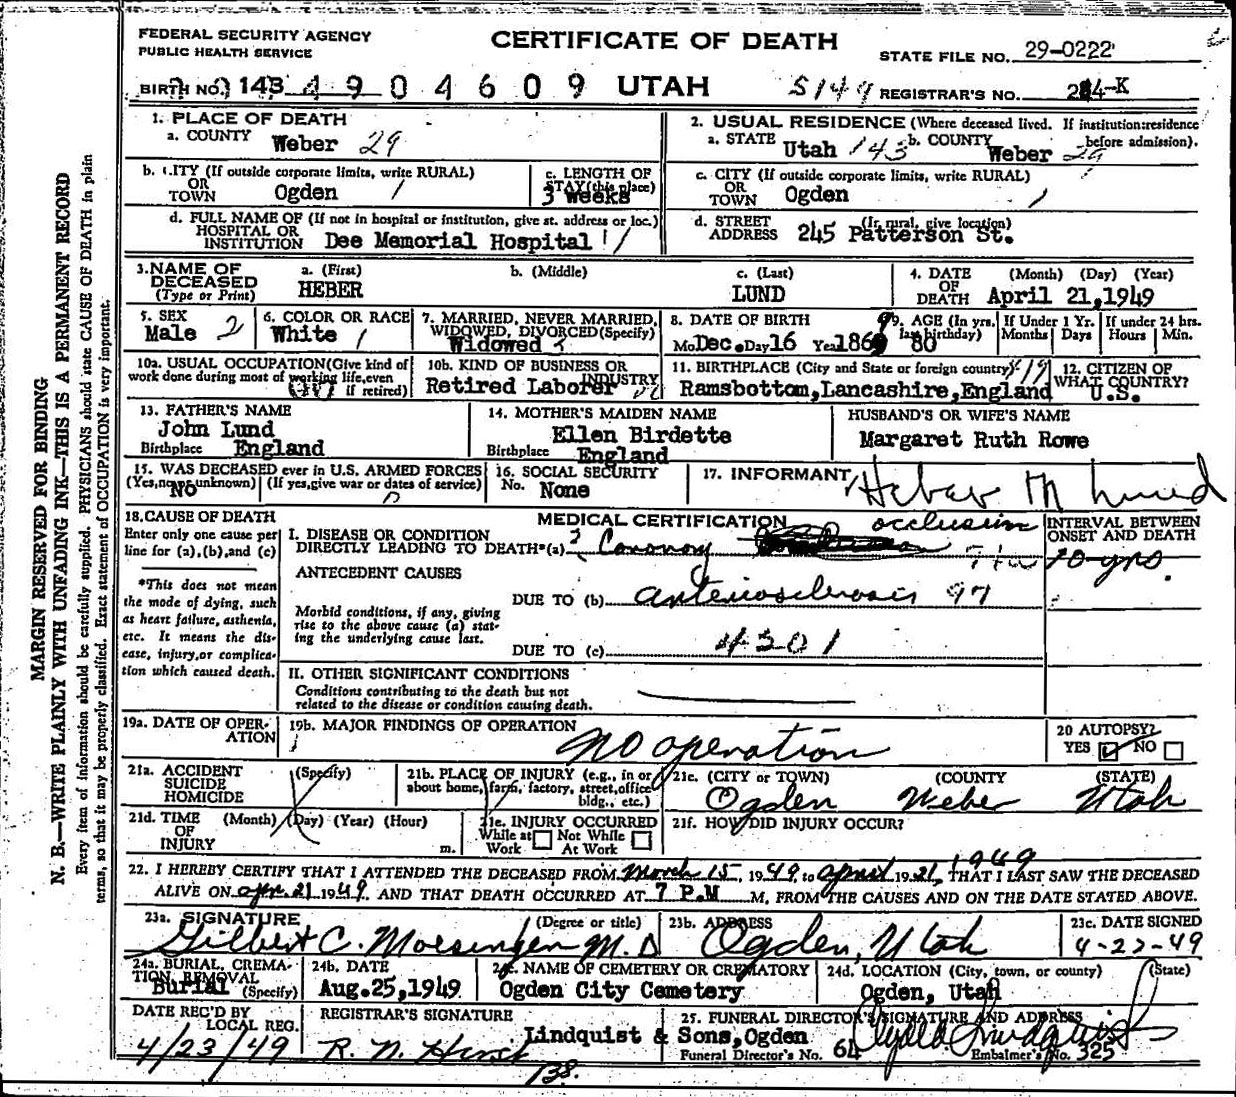 FEDERAL SECURITY AGENCY
PUBLIC HEALTH SERVICE
CERTIFICATE OF DEATH
STATE FILE NO. 29-0222
BIRTH NO. 143 4904609 UTAH S149 REGISTRAR'S NO. 284-K
MARGIN RESERVED FOR BINDING
N. B.—WRITE PLAINLY WITH UNFADING INK—THIS IS A PERMANENT RECORD
Every item of information should be carefully supplied. PHYSICIANS should state CAUSE OF DEATH in plain
terms, so that it may be properly classified. Exact statement of OCCUPATION is very important.
1. PLACE OF DEATH
a. COUNTY Weber 29
2. USUAL RESIDENCE (Where deceased lived. If institution:residence
before admission).
a. STATE Utah 143 b. COUNTY Weber 29
b. CITY (If outside corporate limits, write RURAL)
OR
TOWN Ogden 1
c. LENGTH OF
STAY (this place)
3 weeks
c. CITY (If outside corporate limits, write RURAL)
OR
TOWN Ogden 1
d. FULL NAME OF (If not in hospital or institution, give st. address or loc.)
HOSPITAL OR
INSTITUTION Dee Memorial Hospital 1/
d. STREET (If rural, give location)
ADDRESS 245 Patterson St.
3. NAME OF
DECEASED
(Type or Print)
a. (First)
HEBER
b. (Middle)
c. (Last)
LUND
4. DATE (Month) (Day) (Year)
OF
DEATH April 21,1949
5. SEX
Male 2
6. COLOR OR RACE
White 1
7. MARRIED, NEVER MARRIED,
WIDOWED, DIVORCED(Specify)
Widowed 3
8. DATE OF BIRTH
Mo. Dec. Day 16 Yea 1869
9. AGE (In yrs.
last birthday)
80
If Under 1 Yr.
Months Days
If under 24 hrs.
Hours Min.
10a. USUAL OCCUPATION(Give kind of
work done during most of working life,even
if retired)
10b. KIND OF BUSINESS OR
INDUSTRY
Retired Laborer
11. BIRTHPLACE (City and State or foreign country)
Ramsbottom,Lancashire,England
12. CITIZEN OF
WHAT COUNTRY?
U.S.
13. FATHER'S NAME
John Lund
Birthplace England
14. MOTHER'S MAIDEN NAME
Ellen Birdette
Birthplace England
HUSBAND'S OR WIFE'S NAME
Margaret Ruth Rowe
15. WAS DECEASED ever in U.S. ARMED FORCES
(Yes,no or unknown) (If yes,give war or dates of service)
No 0
16. SOCIAL SECURITY
No. None
17. INFORMANT
Heber M Lund
18. CAUSE OF DEATH
Enter only one cause per
line for (a),(b),and (c)
*This does not mean
the mode of dying, such
as heart failure, asthenia,
etc. It means the dis-
ease, injury,or complica-
tion which caused death.
MEDICAL CERTIFICATION
I. DISEASE OR CONDITION
DIRECTLY LEADING TO DEATH*(a) Coronary occlusion
INTERVAL BETWEEN
ONSET AND DEATH
10 yrs.
ANTECEDENT CAUSES
Morbid conditions, if any, giving
rise to the above cause (a) stat-
ing the underlying cause last.
DUE TO (b) arteriosclerosis 97
DUE TO (c) 4201
II. OTHER SIGNIFICANT CONDITIONS
Conditions contributing to the death but not
related to the disease or condition causing death.
19a. DATE OF OPER-
ATION
19b. MAJOR FINDINGS OF OPERATION
no operation
20 AUTOPSY?
YES NO
21a. ACCIDENT (Specify)
SUICIDE
HOMICIDE
21b. PLACE OF INJURY (e.g., in or
about home, farm, factory, street,office
bldg., etc.)
21c. (CITY or TOWN) (COUNTY (STATE)
Ogden Weber Utah
21d. TIME (Month) (Day) (Year) (Hour)
OF
INJURY m.
21e. INJURY OCCURRED
While at Not While
Work At Work
21f. HOW DID INJURY OCCUR?
22. I HEREBY CERTIFY THAT I ATTENDED THE DECEASED FROM March 15, 1949, to april 1921, 1949 THAT I LAST SAW THE DECEASED
ALIVE ON apr. 21 1949, AND THAT DEATH OCCURRED AT 7 P.M M, FROM THE CAUSES AND ON THE DATE STATED ABOVE.
23a. SIGNATURE (Degree or title)
Gilbert C. Moesinger M.D
23b. ADDRESS
Ogden, Utah
23c. DATE SIGNED
4-22-49
24a. BURIAL, CREMA-
TION, REMOVAL
Burial (Specify)
24b. DATE
Aug.25,1949
24c. NAME OF CEMETERY OR CREMATORY
Ogden City Cemetery
24d. LOCATION (City, town, or county) (State)
Ogden, Utah
DATE REC'D BY
LOCAL REG.
4/23/49
REGISTRAR'S SIGNATURE
25. FUNERAL DIRECTOR'S SIGNATURE AND ADDRESS
Lindquist & Sons,Ogden
Funeral Director's No. 64
Embalmer's No. 325
138.